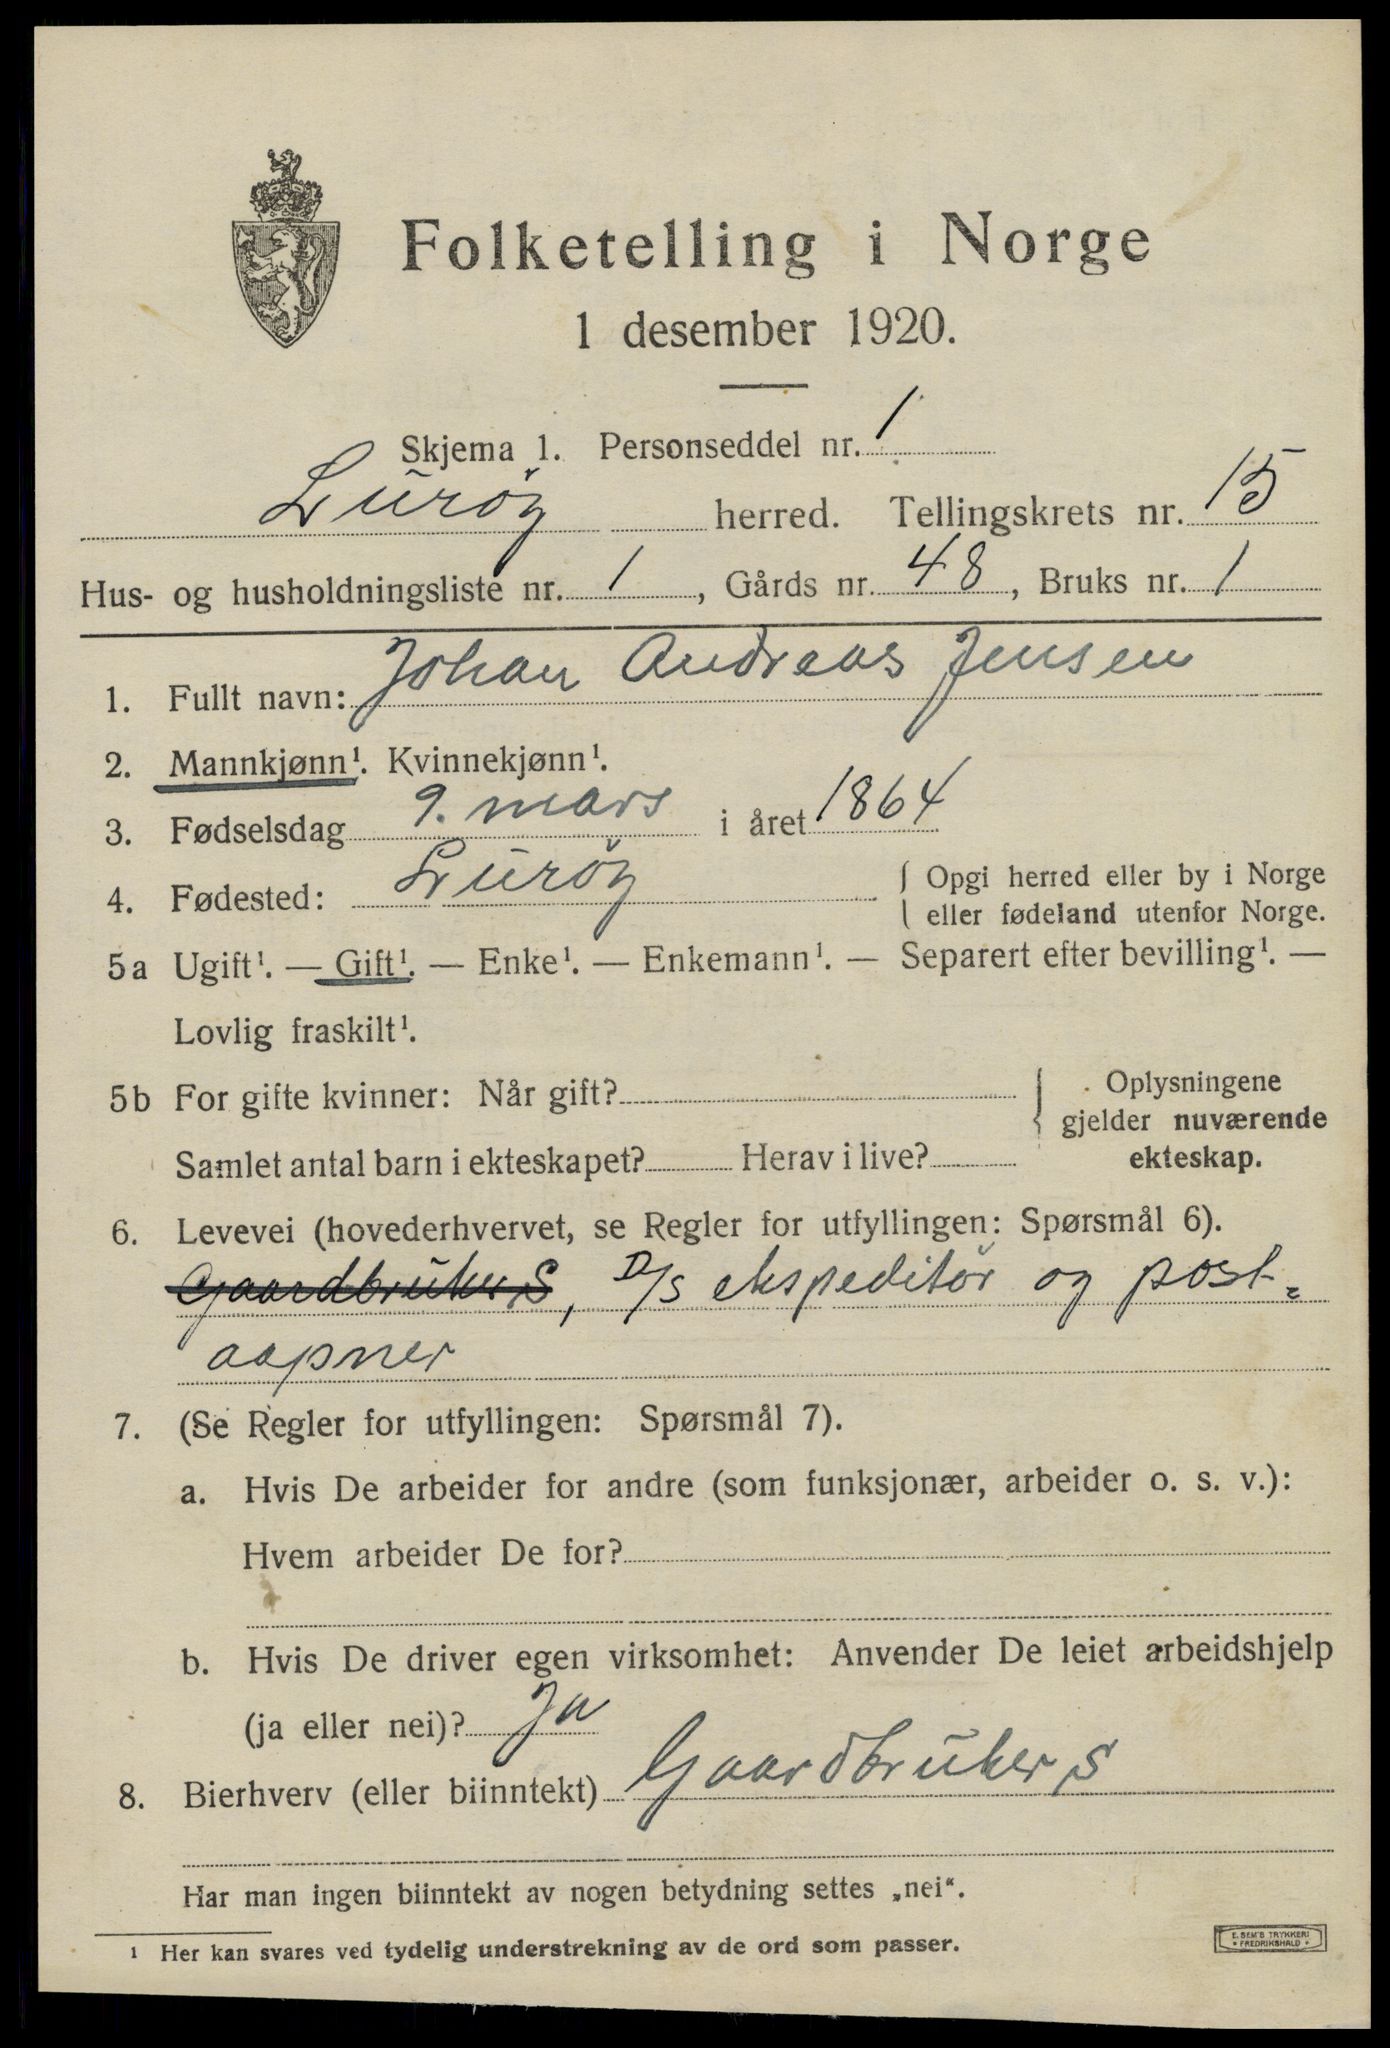 Folketelling i Norge
1 desember 1920.
Skjema 1. Personseddel nr. 1
Lurøy herred. Tellingskrets nr. 15
Hus- og husholdningsliste nr. 1, Gårds nr. 48, Bruks nr. 1
1. Fullt navn: Johan Andreas Jensen
2. Mannkjønn¹. Kvinnekjønn¹.
3. Fødselsdag 9. mars i året 1864
4. Fødested: Lurøy { Opgi herred eller by i Norge
eller fødeland utenfor Norge.
5a Ugift¹. — Gift¹. — Enke¹. — Enkemann¹. — Separert efter bevilling¹. —
Lovlig fraskilt¹.
5b For gifte kvinner: Når gift? { Oplysningene
gjelder nuværende
Samlet antal barn i ekteskapet? Herav i live? ekteskap.
6. Levevei (hovederhvervet, se Regler for utfyllingen: Spørsmål 6).
Gaardbruker S, D/S ekspeditør og post-
aapner
7. (Se Regler for utfyllingen: Spørsmål 7).
a. Hvis De arbeider for andre (som funksjonær, arbeider o. s. v.):
Hvem arbeider De for?
b. Hvis De driver egen virksomhet: Anvender De leiet arbeidshjelp
(ja eller nei)? Ja
8. Bierhverv (eller biinntekt) Gaardbruker S
Har man ingen biinntekt av nogen betydning settes „nei“.
¹ Her kan svares ved tydelig understrekning av de ord som passer.
E. SEM'S TRYKKERI
* FREDRIKSHALD *